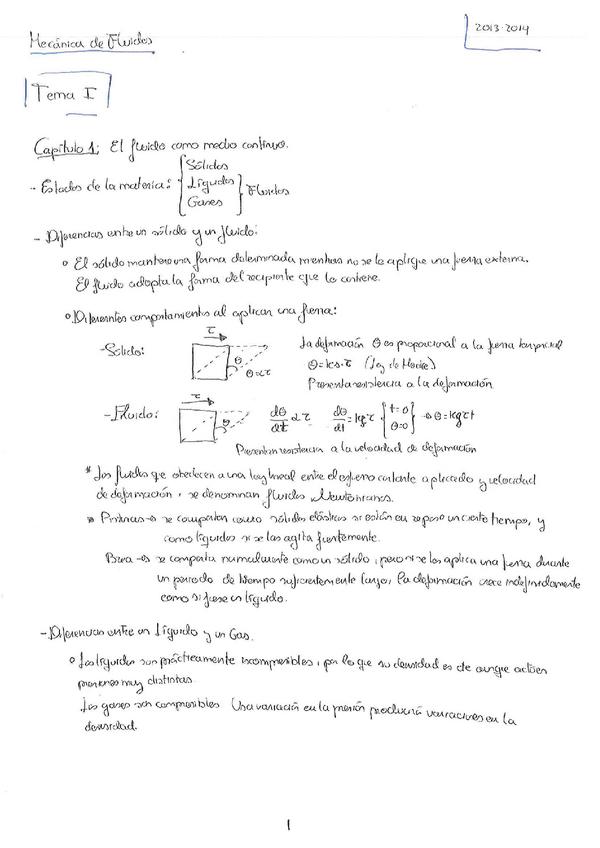 Mecánica de Fluidos
2013-2014
Tema I
Capítulo 1: El fluido como medio continuo.
- Estados de la materia: { Sólidos
Líquidos
Gases } Fluidos
- Diferencias entre un sólido y un fluido:
o El sólido mantiene una forma determinada mientras no se le aplique una fuerza externa.
El fluido adopta la forma del recipiente que lo contiene.
o Diferentes comportamientos al aplicar una fuerza:
-Sólido:
τ
θ
θ∝τ
La deformación θ es proporcional a la fuerza tangencial
θ=ks·τ (Ley de Hooke)
Presenta resistencia a la deformación
-Fluido:
τ
θ
dθ/dt ∝ τ dθ/dt = kgτ { t=0 θ=0 } → θ=kgτt
Presentan resistencia a la velocidad de deformación
* Los fluidos que obedecen a una ley lineal entre el esfuerzo cortante aplicado y velocidad
de deformación, se denominan fluidos Newtonianos.
* Pinturas → se comportan como sólidos elásticos si están en reposo un cierto tiempo, y
como líquidos si se las agita fuertemente.
Brea → se comporta normalmente como un sólido, pero si se les aplica una fuerza durante
un periodo de tiempo suficientemente largo, la deformación crece indefinidamente
como si fuese un líquido.
- Diferencias entre un Líquido y un Gas.
o Los líquidos son prácticamente incompresibles, por lo que su densidad es cte aunque actúen
presiones muy distintas.
Los gases son compresibles Una variación en la presión producirá variaciones en la
densidad.
1